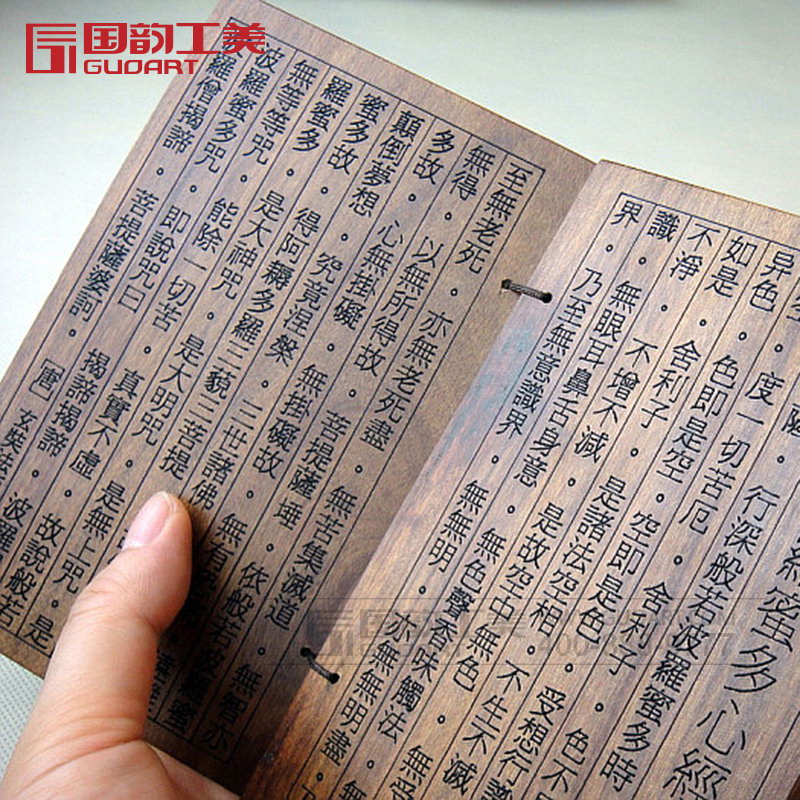 国韵工美
GUOART
蜜多心經
行深般若波羅蜜多時
度一切苦厄。舍利子。色不
異色。色即是空。空即是色。受想行識
如是。舍利子。是諸法空相。不生不滅
不淨。不增不減。是故空中無色。無受
識。無眼耳鼻舌身意。無色聲香味觸法。
界。乃至無意識界。無無明。亦無無明盡。
至無老死。亦無老死盡。無苦集滅道。無智亦
無得。以無所得故。菩提薩埵。依般若波羅蜜
多故。心無掛礙。無掛礙故。無有
顛倒夢想。究竟涅槃。三世諸佛
蜜多故。得阿耨多羅三藐三菩提
羅蜜多。是大神咒。是大明咒。是無上咒。是
無等等咒。能除一切苦。真實不虛。故說般若
波羅蜜多咒。即說咒曰。揭諦揭諦。波羅
波羅僧揭諦。菩提薩婆訶。[唐]玄奘法
国韵工美
GUOART